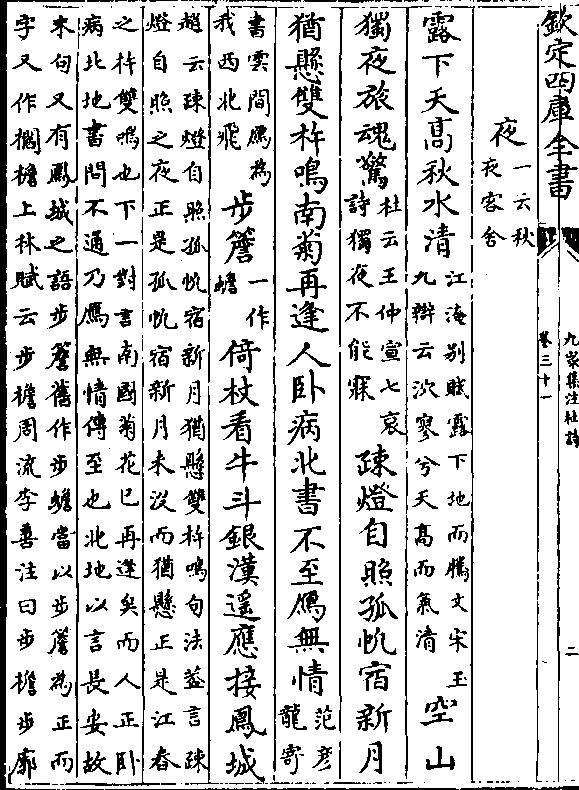 欽定四庫全書
九家集注杜詩
卷三十一
二
夜一云秋夜客舍
露下天高秋水清江淹别賦露下地而騰文宋玉九辯云泬寥兮天高而氣清空山
獨夜旅魂驚杜云王仲宣七哀詩獨夜不能寐疎燈自照孤帆宿新月
猶懸雙杵鳴南菊再逢人卧病北書不至鴈無情范彦龍寄
書雲間鴈為我西北飛步簷一作蟾倚杖看牛斗銀漢遥應接鳳城
趙云疎燈自照孤帆宿新月猶懸雙杵鳴句法蓋言疎
燈自照之夜正是孤帆宿新月未没而猶懸正是江春
之杵雙鳴也下一對言南國菊花已再逢矣而人正卧
病北地書問不通乃鴈無情傳至也北地以言長安故
末句又有鳳城之語步簷舊作步蟾當以步簷為正而
字又作櫩檐上林賦云步檐周流李善注曰步檐步廊